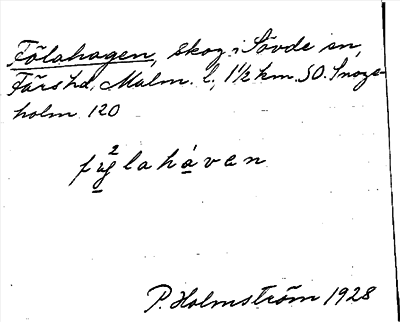 Fölahagen, skog i Sövde sn,
Färs hd, Malm. l., 1 1/2 km. SO. Snoge-
holm 120
2
fųglahávan
P. Holmström 1928